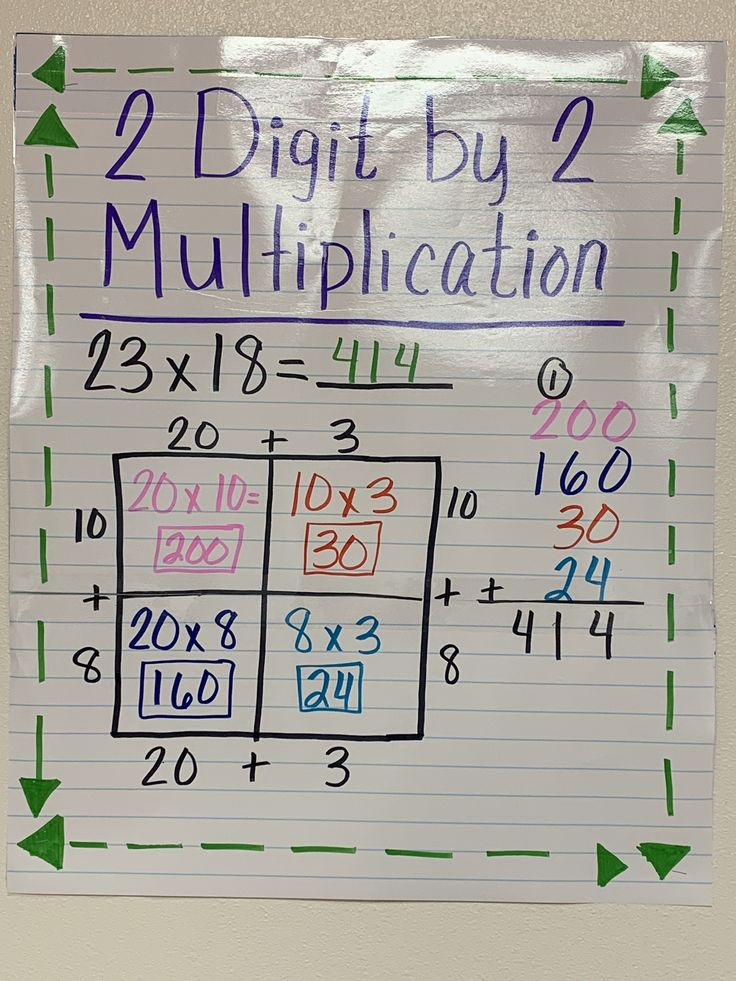 2 Digit by 2
Multiplication
23 x 18 = 414
20 + 3
10
20 x 10 =
200
10 x 3
30
10
+
20 x 8
160
8 x 3
24
+
8
8
20 + 3
1
200
160
30
+ 24
414